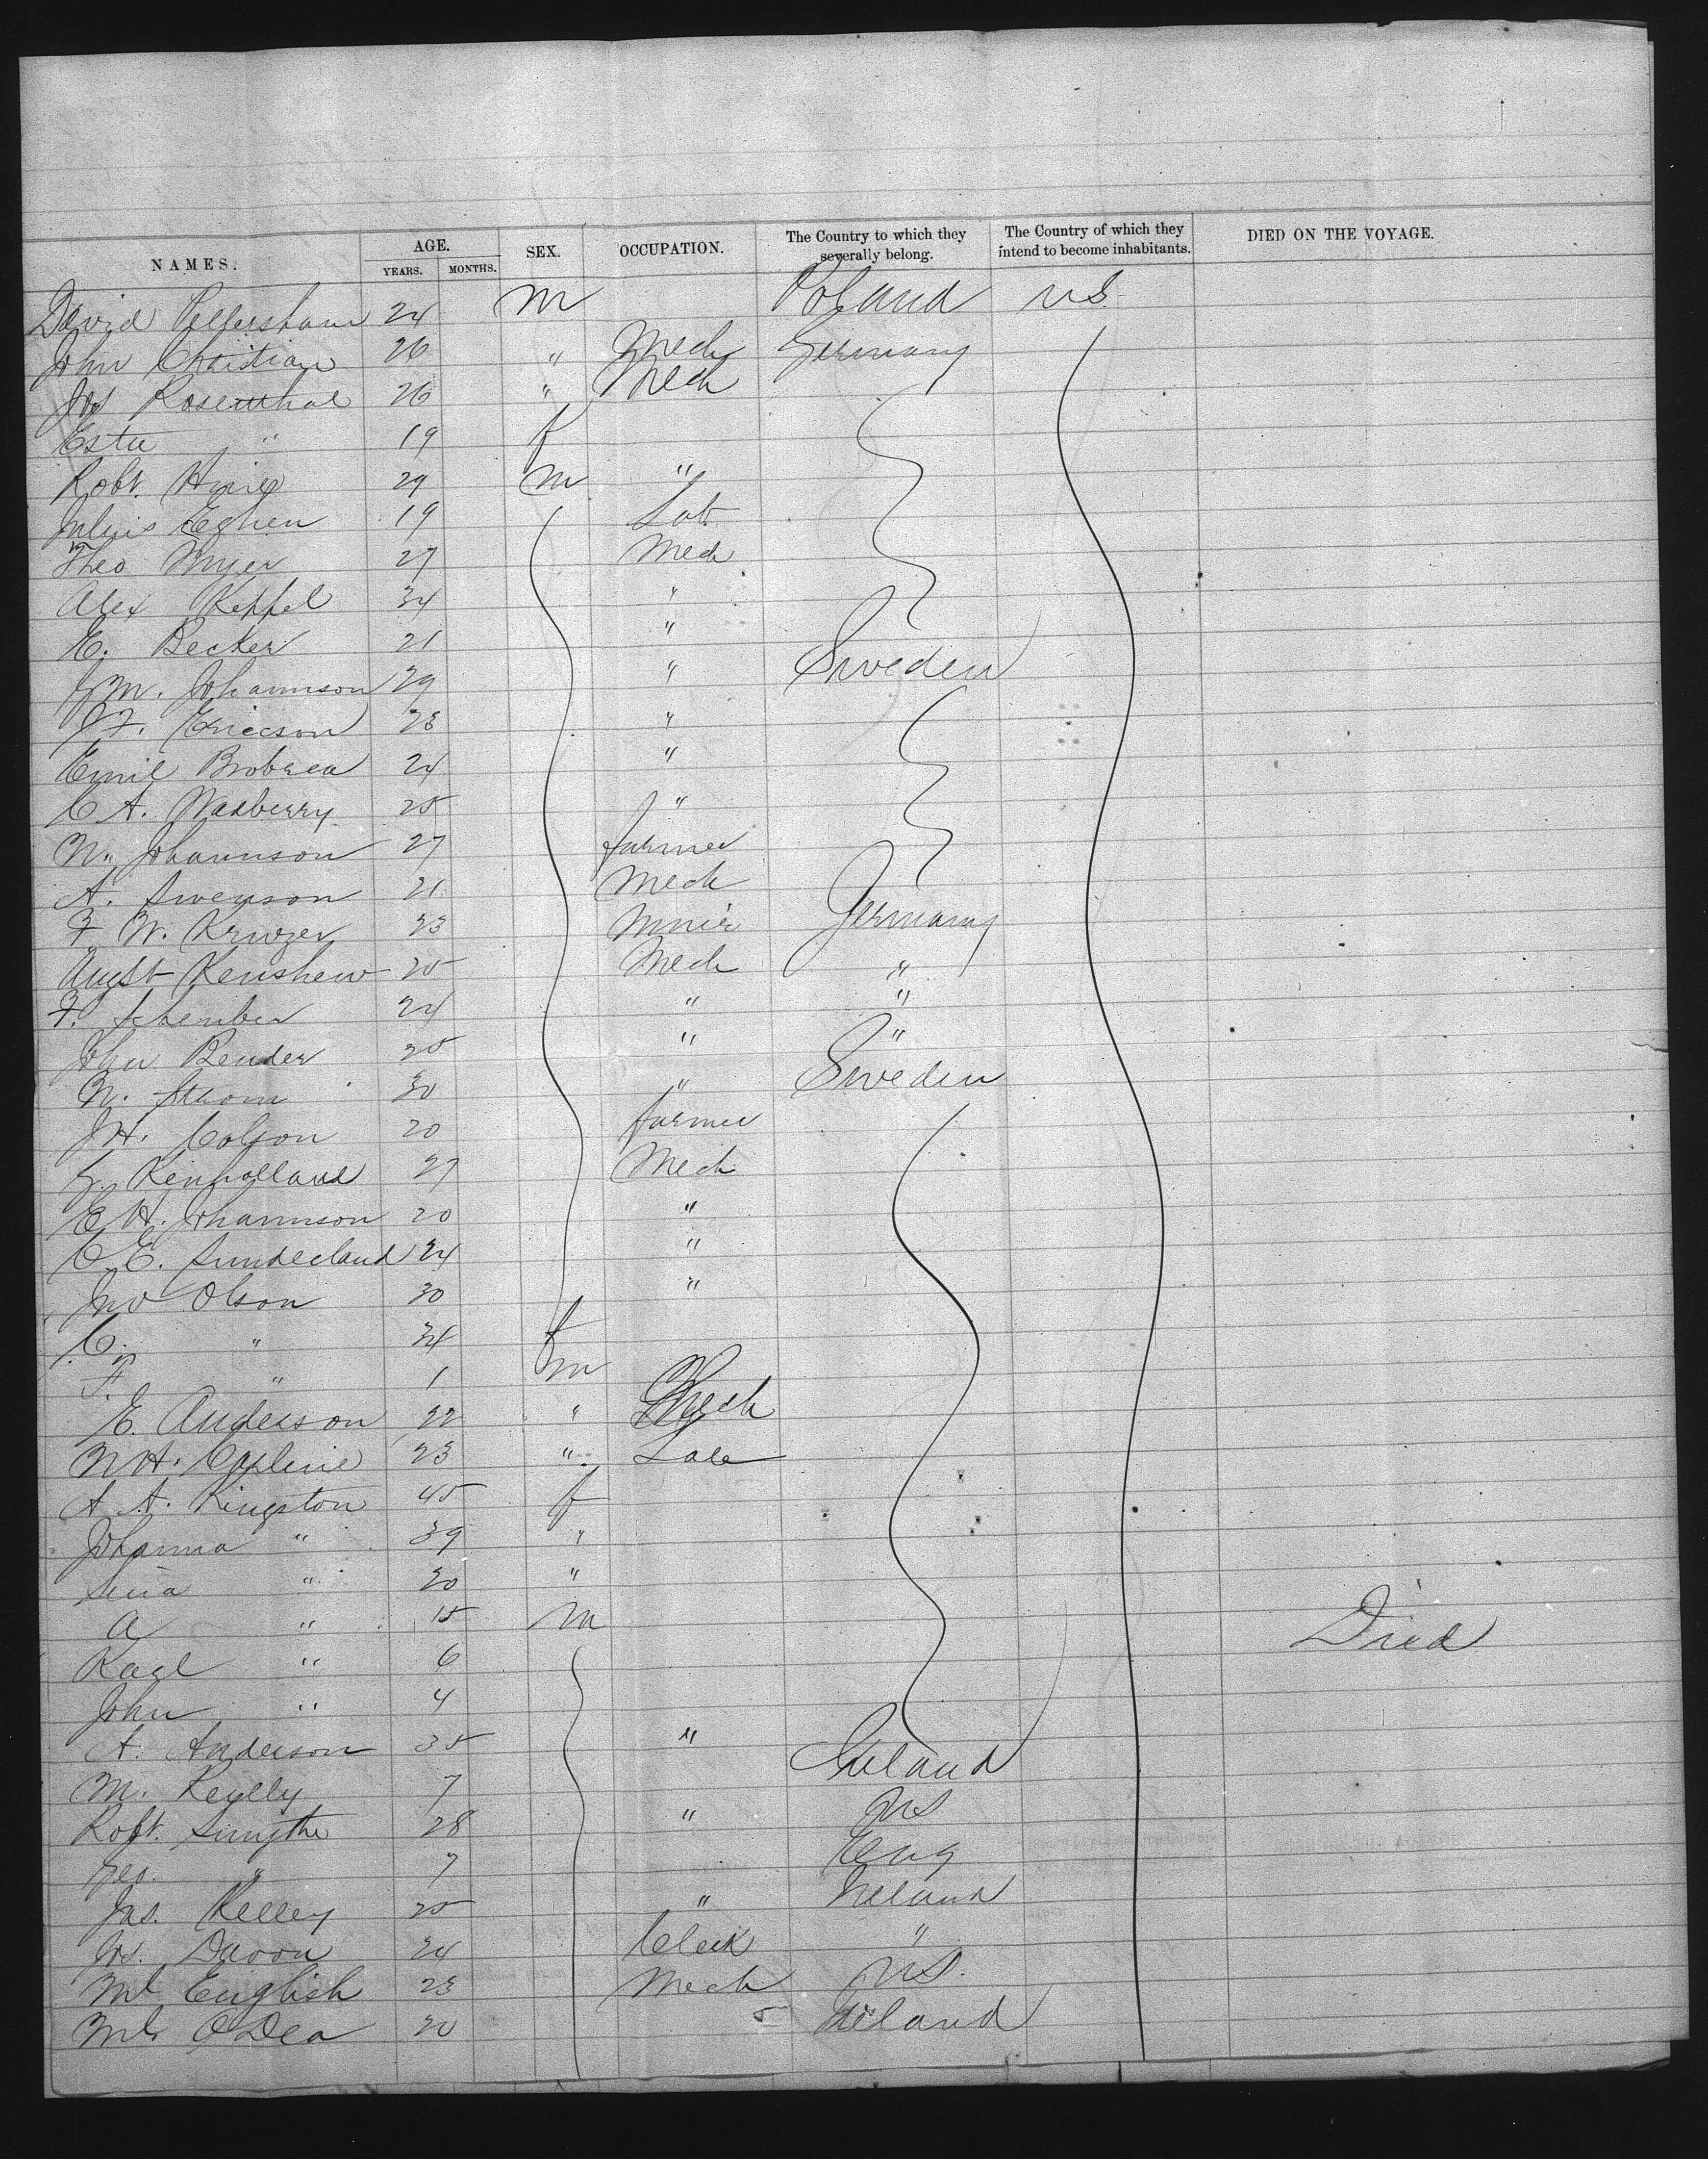 NAMES. AGE. YEARS. MONTHS. SEX. OCCUPATION. The Country to which they severally belong. The Country of which they intend to become inhabitants. DIED ON THE VOYAGE.
David 24 m Poland US
John Christian 26 " Mech Germany
Jos Rosenthal 26 " Mech
" 19 f
Robt. 29 m "
Julius 19 Lab
Theo Myer 27 Mech
Alex Keppel 34 "
E. Becker 21 "
G M. Johannson 29 " Sweden
F. Ericson 23 "
Emil 24 "
C A. Wadberry 25 "
N. Johannson 27 farmer
A. Swenson 21 Mech
F W. Kruger 23 Germany
Augst 25 Mech "
F. 24 " "
John Bender 25 " "
N. Strom 30 " Sweden
J H. Colson 20 farmer
27 Mech
E H. Johannson 20 "
C. E. Sunderland 24 "
Jno Olson 30 "
C. " 34 f
F. " 1 m
E. Anderson 22 " Mech
N H. 23 "
A A. Kingston 45 f
Johanna " 39 "
" 20 "
A " 15 m Died
Karl " 6
John " 4
A. Anderson 35 "
M. Reylly 7 Ireland
Robt. Smythe 28 " US
Geo. " 7 Eng
Jas. Kelley 25 " Ireland
Jos. 24 Clerk "
Ml English 23 Mech US.
Ml. O'Dea 20 Ireland